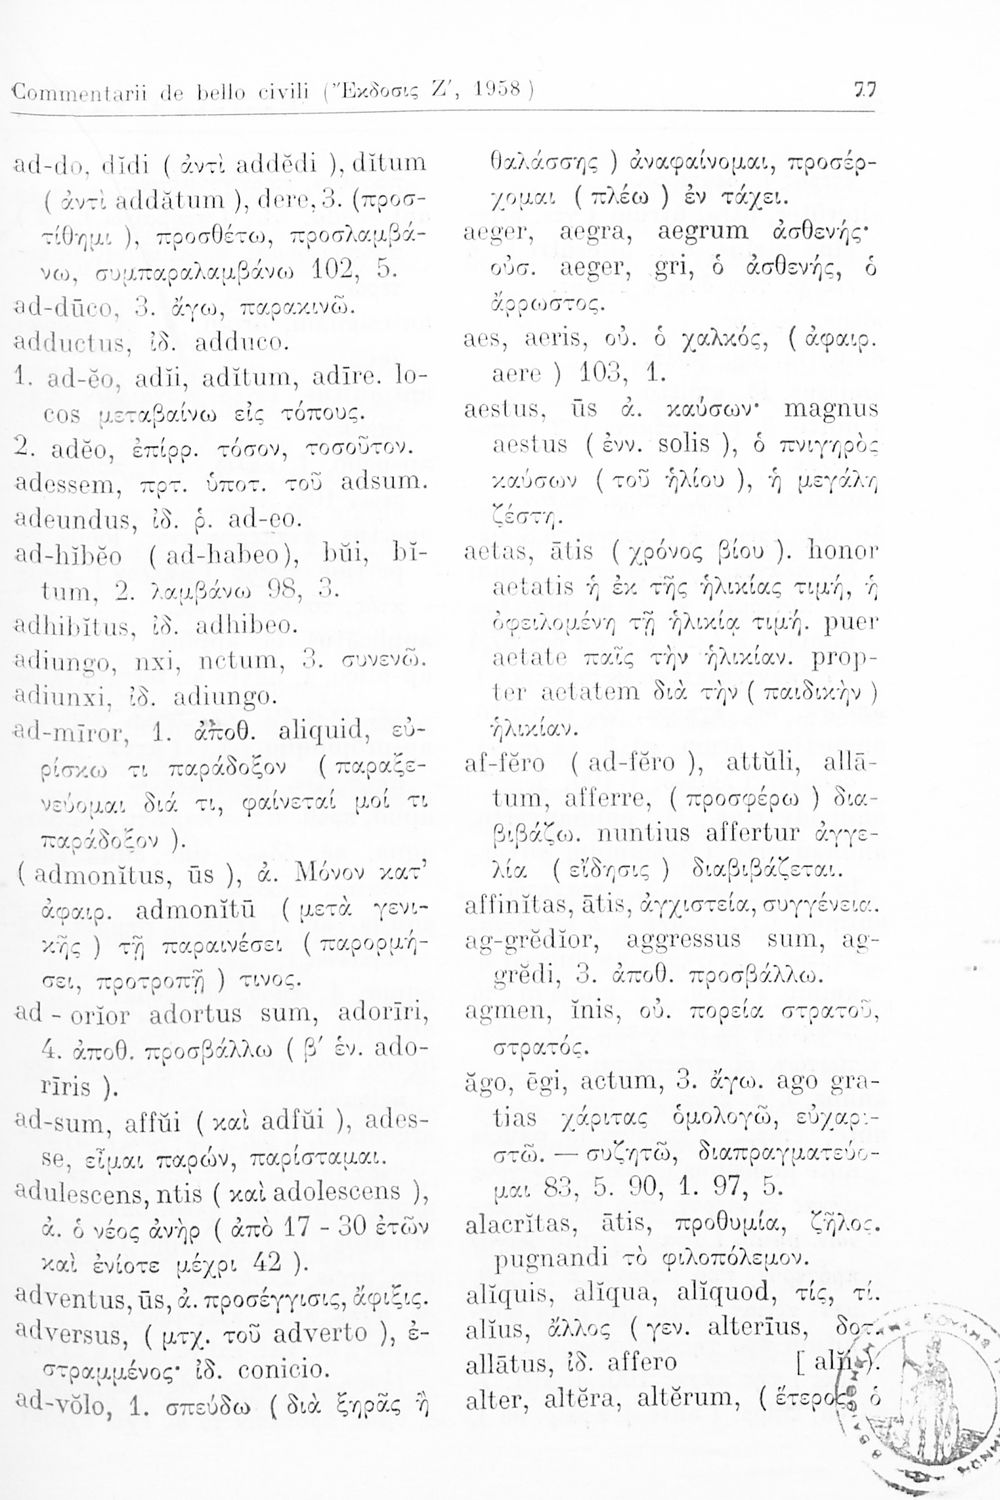 Commentarii de bello civili (Ἔκδοσις Ζ΄, 1958)
77
ad-do, dĭdi ( ἀντὶ addĕdi ), dĭtum
( ἀντὶ addătum ), dere, 3. (προσ-
τίθημι ), προσθέτω, προσλαμβά-
νω, συμπαραλαμβάνω 102, 5.
ad-dūco, 3. ἄγω, παρακινῶ.
adductus, ἰδ. adduco.
1. ad-ĕo, adĭi, adĭtum, adīre. lo-
cos μεταβαίνω εἰς τόπους.
2. adĕo, ἐπίρρ. τόσον, τοσοῦτον.
adessem, πρτ. ὑποτ. τοῦ adsum.
adeundus, ἰδ. ῥ. ad-eo.
ad-hĭbĕo ( ad-habeo), bŭi, bĭ-
tum, 2. λαμβάνω 98, 3.
adhibĭtus, ἰδ. adhibeo.
adiungo, nxi, nctum, 3. συνενῶ.
adiunxi, ἰδ. adiungo.
ad-mīror, 1. ἀποθ. aliquid, εὑ-
ρίσκω τι παράδοξον ( παραξε-
νεύομαι διά τι, φαίνεταί μοί τι
παράδοξον ).
( admonĭtus, ūs ), ἀ. Μόνον κατ’
ἀφαιρ. admonĭtū ( μετὰ γενι-
κῆς ) τῇ παραινέσει ( παρορμή-
σει, προτροπῇ ) τινος.
ad - orĭor adortus sum, adorīri,
4. ἀποθ. προσβάλλω ( β΄ ἑν. ado-
rīris ).
ad-sum, affŭi ( καὶ adfŭi ), ades-
se, εἶμαι παρών, παρίσταμαι.
adulescens, ntis ( καὶ adolescens ),
ἀ. ὁ νέος ἀνὴρ ( ἀπὸ 17 - 30 ἐτῶν
καὶ ἐνίοτε μέχρι 42 ).
adventus, ūs, ἀ. προσέγγισις, ἄφιξις.
adversus, ( μτχ. τοῦ adverto ), ἐ-
στραμμένος· ἰδ. conicio.
ad-vŏlo, 1. σπεύδω ( διὰ ξηρᾶς ἢ
θαλάσσης ) ἀναφαίνομαι, προσέρ-
χομαι ( πλέω ) ἐν τάχει.
aeger, aegra, aegrum ἀσθενής·
οὐσ. aeger, gri, ὁ ἀσθενής, ὁ
ἄρρωστος.
aes, aeris, οὐ. ὁ χαλκός, ( ἀφαιρ.
aere ) 103, 1.
aestus, ūs ἀ. καύσων· magnus
aestus ( ἐνν. solis ), ὁ πνιγηρὸς
καύσων ( τοῦ ἡλίου ), ἡ μεγάλη
ζέστη.
aetas, ātis ( χρόνος βίου ). honor
aetatis ἡ ἐκ τῆς ἡλικίας τιμή, ἡ
ὀφειλομένη τῇ ἡλικίᾳ τιμή. puer
aetate παῖς τὴν ἡλικίαν. prop-
ter aetatem διὰ τὴν ( παιδικὴν )
ἡλικίαν.
af-fĕro ( ad-fĕro ), attŭli, allā-
tum, afferre, ( προσφέρω ) δια-
βιβάζω. nuntius affertur ἀγγε-
λία ( εἴδησις ) διαβιβάζεται.
affinĭtas, ātis, ἀγχιστεία, συγγένεια.
ag-grĕdĭor, aggressus sum, ag-
grĕdi, 3. ἀποθ. προσβάλλω.
agmen, ĭnis, οὐ. πορεία στρατοῦ,
στρατός.
ăgo, ēgi, actum, 3. ἄγω. ago gra-
tias χάριτας ὁμολογῶ, εὐχαρι-
στῶ. — συζητῶ, διαπραγματεύο-
μαι 83, 5. 90, 1. 97, 5.
alacrĭtas, ātis, προθυμία, ζῆλος.
pugnandi τὸ φιλοπόλεμον.
alĭquis, alĭqua, alĭquod, τίς, τί.
alĭus, ἄλλος ( γεν. alterīus, δοτ.
allātus, ἰδ. affero [ alĭi ).
alter, altĕra, altĕrum, ( ἕτερος ὁ